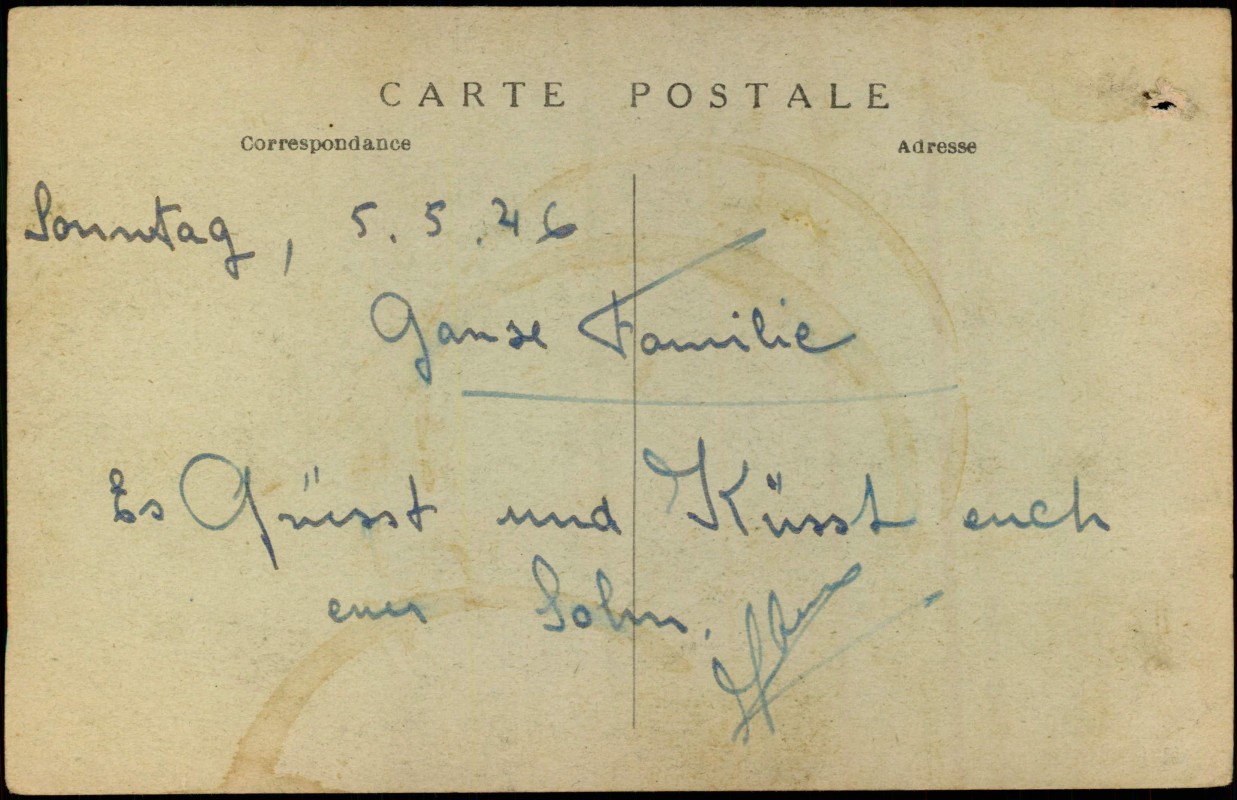 CARTE POSTALE
Correspondance
Adresse
Sonntag, 5.5.46
Ganse Familie
Es Grüsst und Küsst euch
euer Sohn.